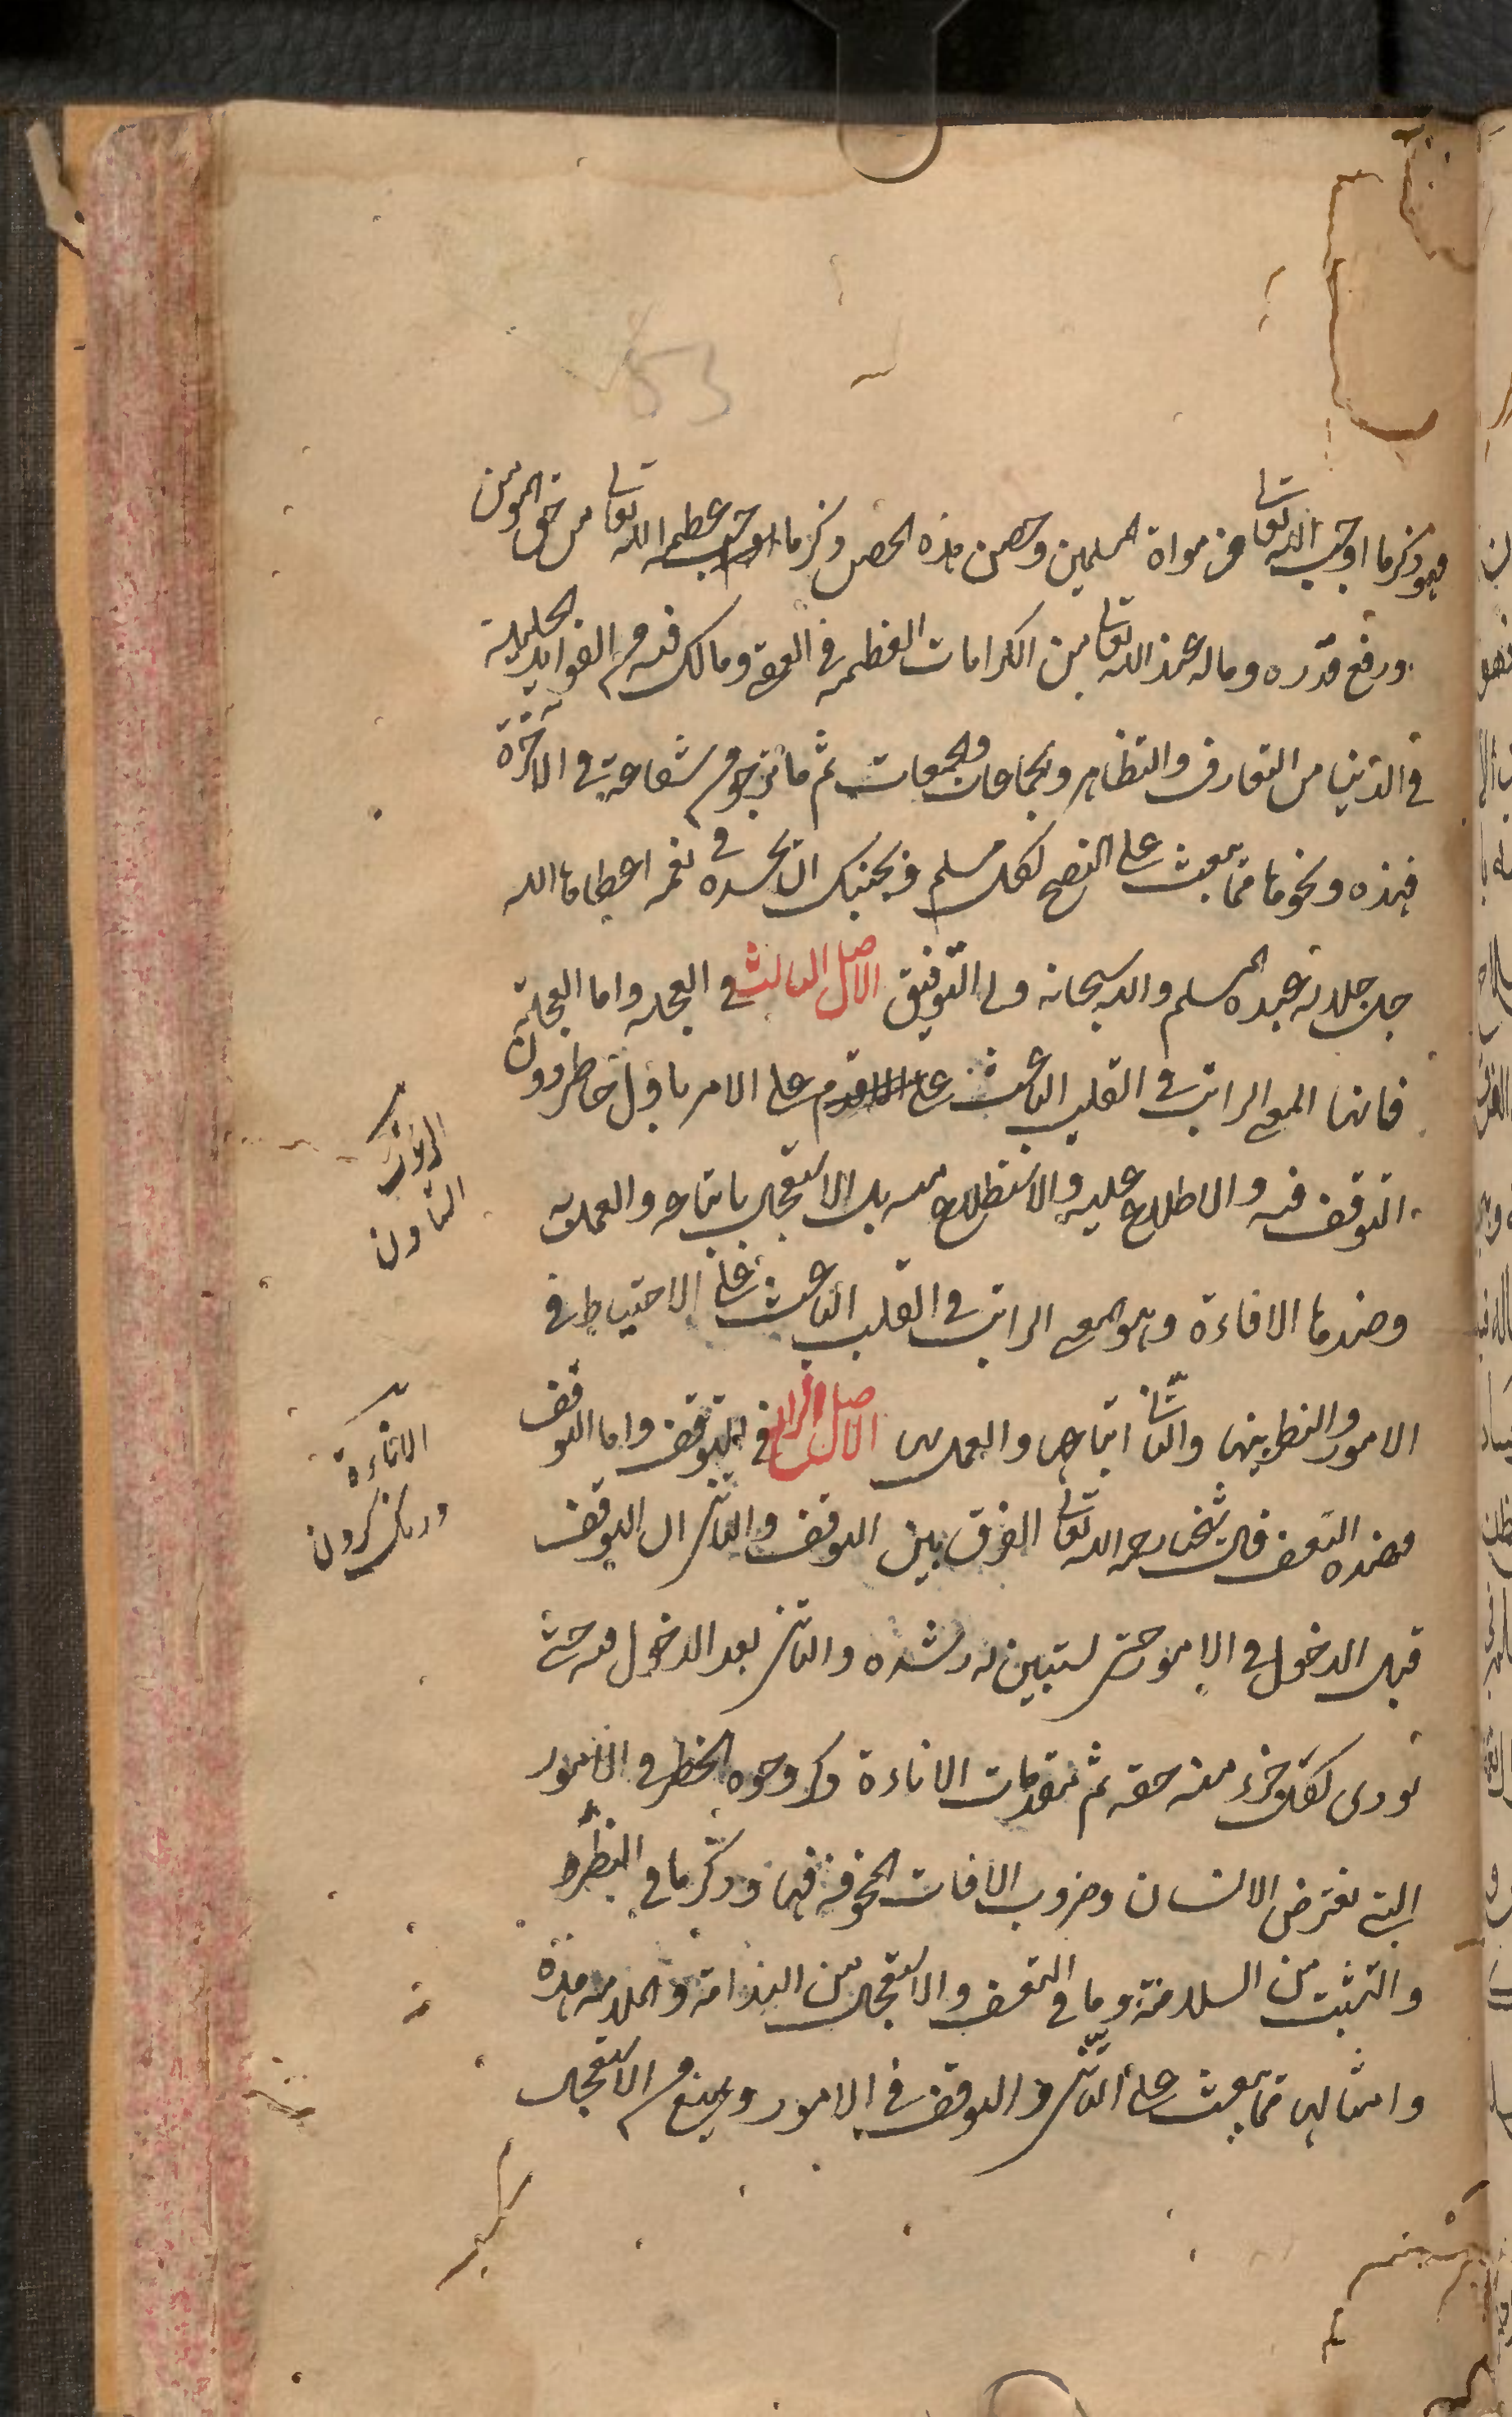 53
فهو ذكر ما اوجب الله تعالى من موالاة المسلمين وحصن هذه الحصن ذكر ما اوجب عظمه الله تعالى من حق المومن
ورفع قدره وماله عند الله تعالى من الكرامات العظيمة في العقبى وما لك فيه من الفوايد الجليلة
في الدنيا من التعارف والتظاهر والجماعات والجمعات ثم ما ترجو من شفاعته في الاخرة
فهذه ونحوها مما يبعث على النصح لكل مسلم ويجنبك ان تحسده في نعمه اعطاها الله
جل جلاله عبده المسلم والله سبحانه ولى التوفيق الاصل الثالث في العجلة واما العجلة
فانها المعنى الراتب في القلب الباعث على الاقدام على الامر باول خاطر دون
التوقف فيه والاطلاع عليه والاستطلاع منه بل الاستعجال باتباعه والعمل به
وضدها الاناءة وهو المعنى الراتب في القلب الباعث على الاحتياط في
الامور والنظر فيها والتأنى في اتباعها والعمل بها الاصل الرابع في التوقف واما التوقف
فضده التعسف قال شيخنا رحمه الله تعالى الفرق بين التوقف والتأنى ان التوقف
قبل الدخول في الامور حتى يستبين له رشده والتأنى بعد الدخول فيه حتى
يودى لكل جزء منه حقه ثم مقدمات الاناءة ذكر وجوه الخطر في الامور
التى تعترض الانسان وضروب الافات المخوفة فيها وذكر ما في النظر و
والتثبت من السلامة وما في التعسف والاستعجال من الندامة والملامة فهذه
وامثالها مما يبعث على التأنى والتوقف في الامور ويمنع من الاستعجال
الاناءة
درنك كردن